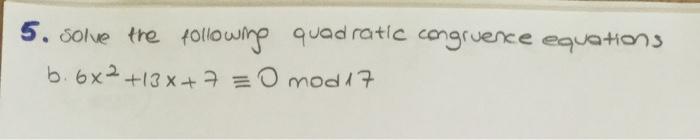 5. solve the following quadratic congruence equations
b. 6x² +13x+7 ≡ 0 mod17